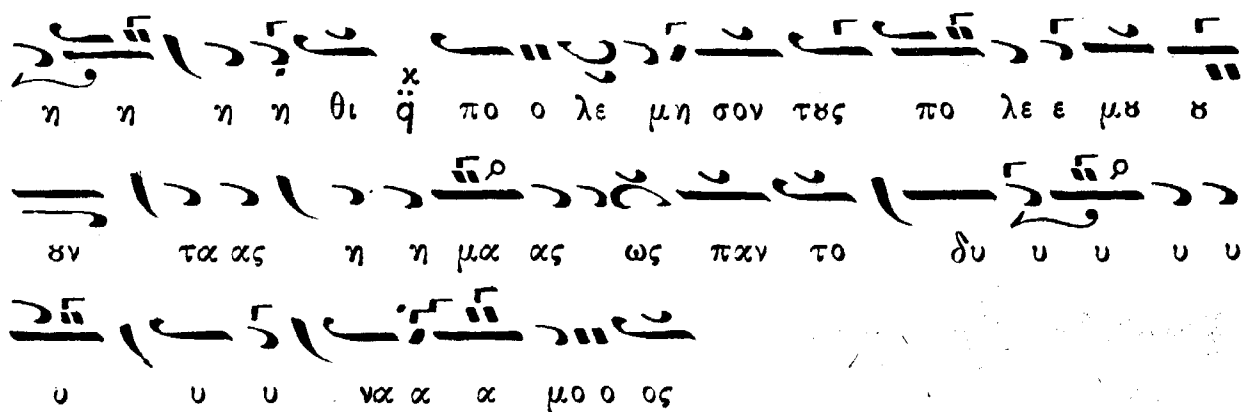 η η η η θι ϰ q̈ πο ο λε μη σον τȣς πο λε ε μȣ ȣ
ȣν τα ας η η μα ας ως παν το δυ υ υ υ υ
υ υ υ να α α μο ο ος